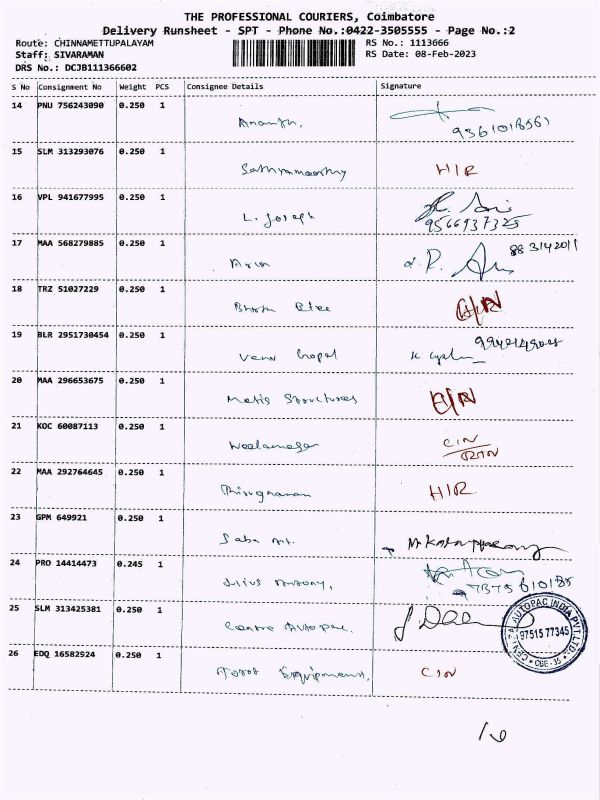 THE PROFESSIONAL COURIERS, Coimbatore
Delivery Runsheet - SPT - Phone No.:0422-3505555 - Page No.:2
Route: CHINNAMETTUPALAYAM RS No.: 1113666
Staff: SIVARAMAN RS Date: 08-Feb-2023
DRS No.: DCJB111366602
S No Consignment No Weight PCS Consignee Details Signature
14 PNU 756243090 0.250 1
Ananth.
15 SLM 313293076 0.250 1
HIR
16 VPL 941677995 0.250 1
L. Joseph
9566937325
17 MAA 568279885 0.250 1
Arun
18 TRZ 51027229 0.250 1
19 BLR 2951730454 0.250 1
Venu Gopal
20 MAA 296653675 0.250 1
Structures
21 KOC 60087113 0.250 1
CIN
22 MAA 292764645 0.250 1
HIR
23 GPM 649921 0.250 1
24 PRO 14414473 0.245 1
Julius Antony,
25 SLM 313425381 0.250 1
Centra Autopac.
CENTRA AUTOPAC INDIA PVT.LTD.
97515 77345
CBE-35
26 EDQ 16582924 0.250 1
Equipments,
CIN